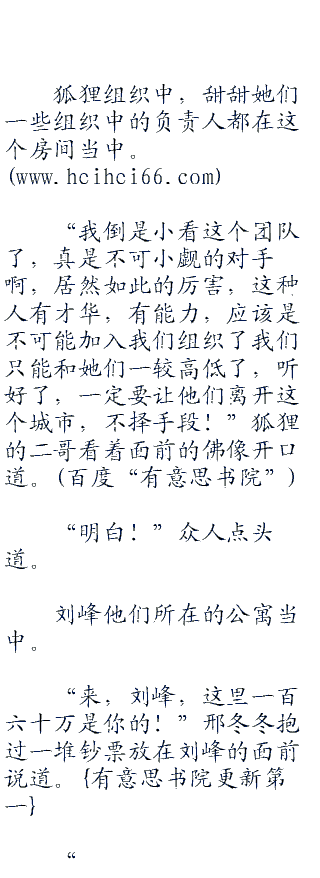 狐狸组织中，甜甜她们
一些组织中的负责人都在这
个房间当中。
(www.hcihci66.com)
“我倒是小看这个团队
了，真是不可小觑的对手
啊，居然如此的厉害，这种
人有才华，有能力，应该是
不可能加入我们组织了我们
只能和她们一较高低了，听
好了，一定要让他们离开这
个城市，不择手段！”狐狸
的二哥看着面前的佛像开口
道。(百度“有意思书院”)
“明白！”众人点头
道。
刘峰他们所在的公寓当
中。
“来，刘峰，这里一百
六十万是你的！”邢冬冬抱
过一堆钞票放在刘峰的面前
说道。{有意思书院更新第
一}
“